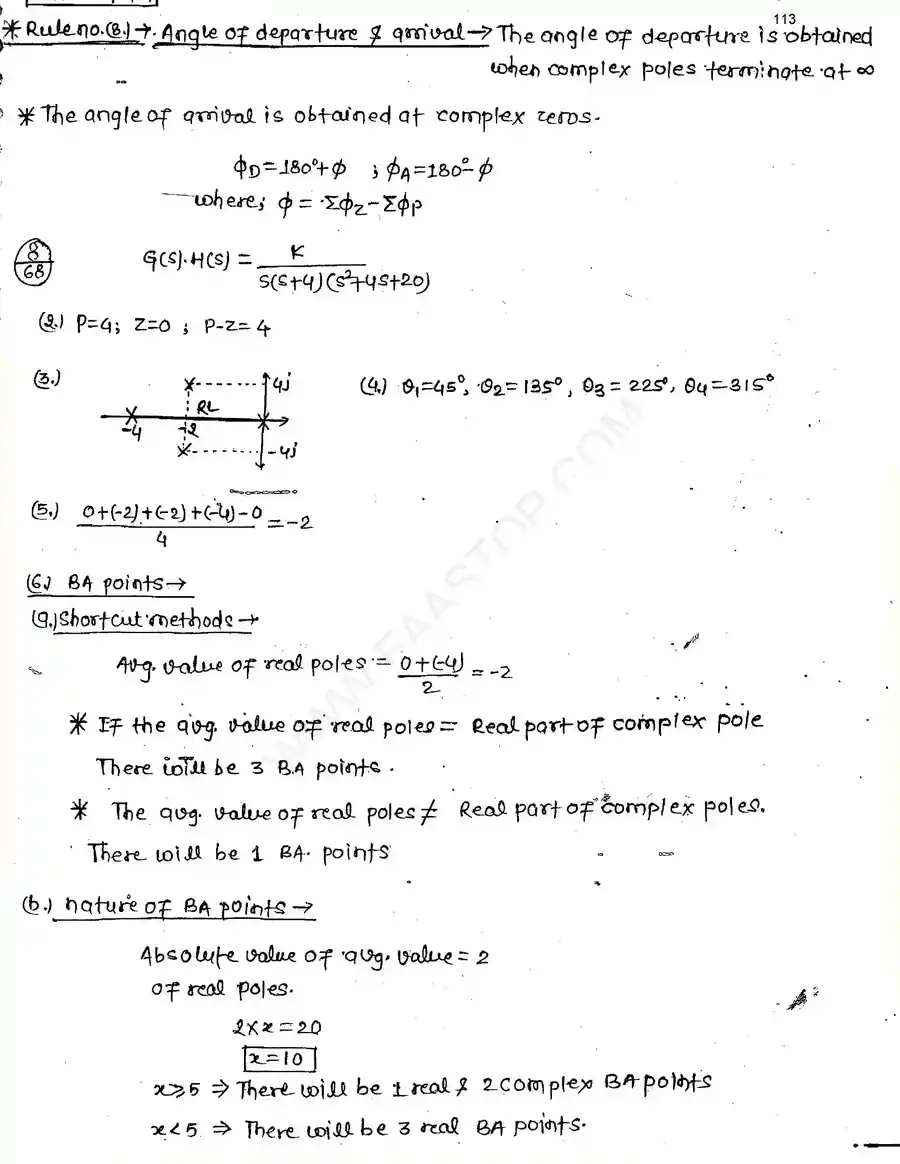 113
* Rule no.(8.) →. Angle of departure & arrival → The angle of departure is obtained
when complex poles terminate at ∞
* The angle of arrival is obtained at complex zeros.
ϕD = 180° + ϕ ; ϕA = 180° - ϕ
where; ϕ = Σϕz - Σϕp
8/68 G(s).H(s) = K / s(s+4)(s²+4s+20)
(2.) P=4; Z=0 ; P-Z= 4
(3.) 4j RL -4 -2 -4j
(4.) θ1=45°, θ2=135°, θ3=225°, θ4=315°
(5.) 0+(-2)+(-2)+(-4)-0 / 4 = -2
(6.) BA points →
(a.) Shortcut methods →
Avg. value of real poles = 0+(-4) / 2 = -2
* If the avg. value of real poles = Real part of complex pole
There will be 3 B.A points.
* The avg. value of real poles ≠ Real part of complex poles.
There will be 1 BA. points
(b.) nature of BA points →
Absolute value of avg. value = 2
of real poles.
2 × x = 20
x = 10
x ≥ 5 ⇒ There will be 1 real & 2 complex BA points
x < 5 ⇒ There will be 3 real BA points.
WWW.FAASTOP.COM